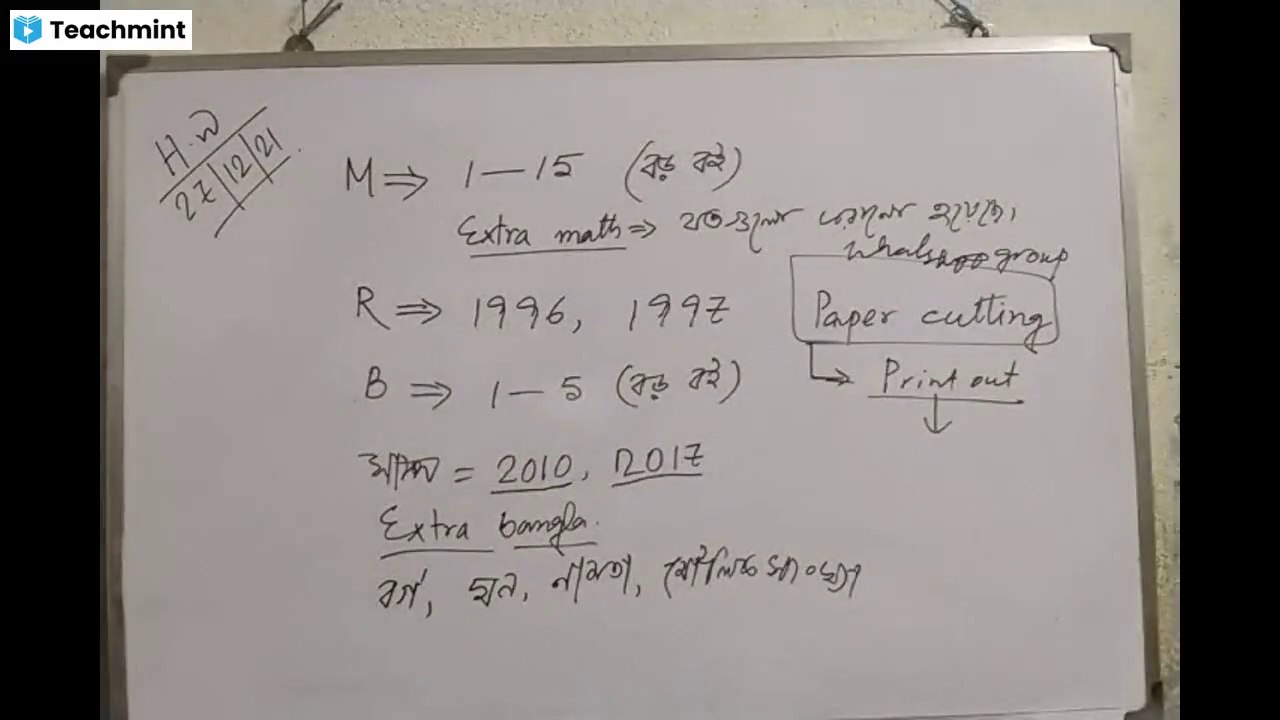 Teachmint
H.W
27|12|21
M ⇒ 1—15 (বড় বই)
Extra math ⇒ যতগুলো দেওয়া হয়েছে,
group
R ⇒ 1996, 1997
Paper cutting
B ⇒ 1—5 (বড় বই)
Print out
= 2010, 2017
Extra bangla.
বর্গ, ঘন, নামতা, মৌলিক সংখ্যা